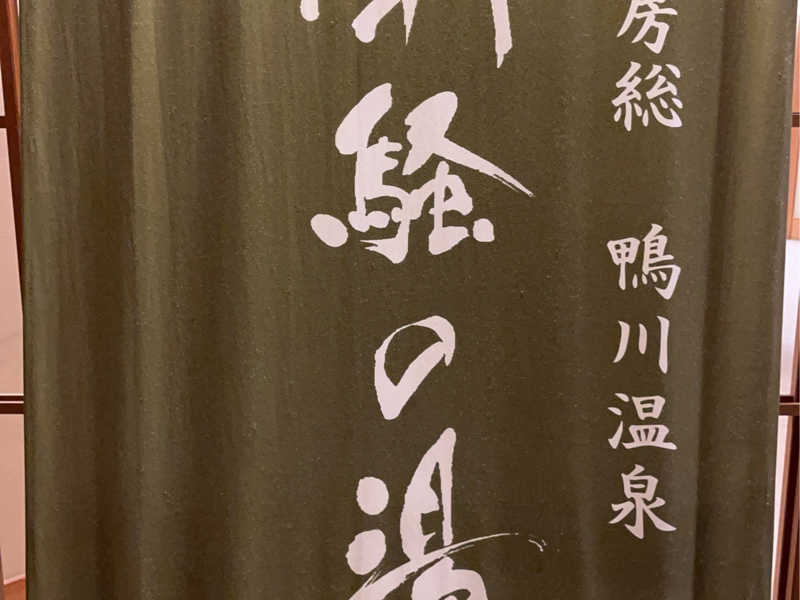 房総 鴨川温泉
騒の湯